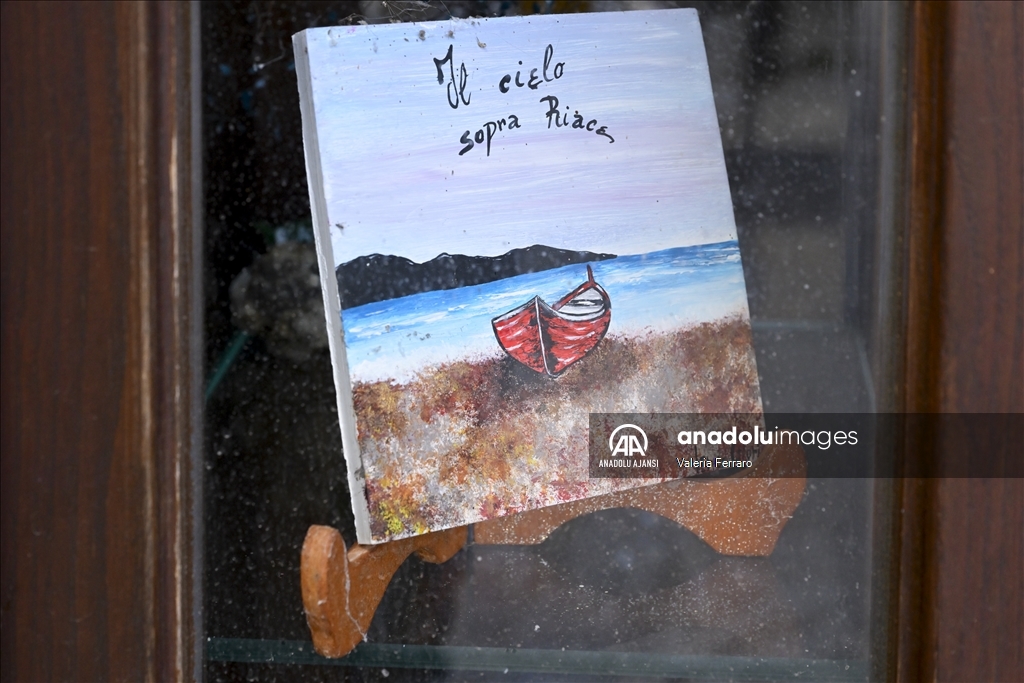 Il cielo
sopra Riace
anadoluimages
ANADOLU AJANSI
Valeria Ferraro